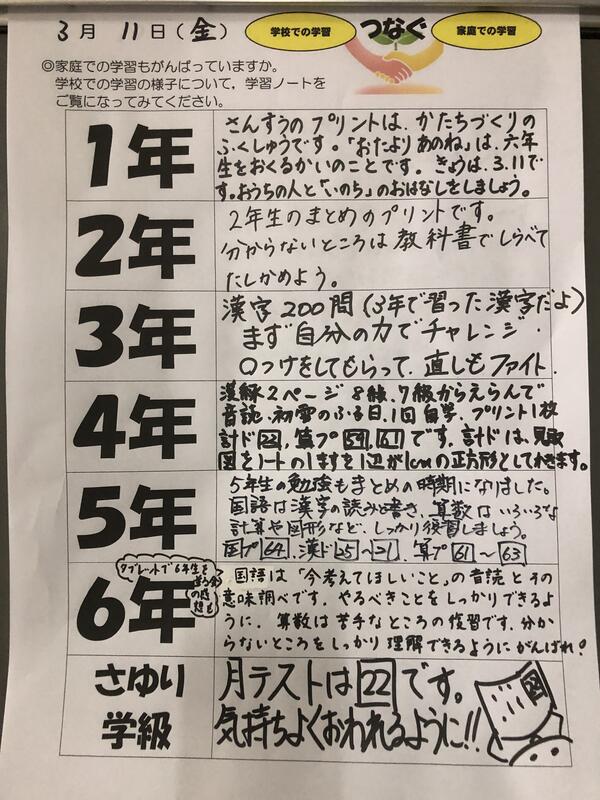 3月 11日(金)
学校での学習
つなぐ
家庭での学習
◎家庭での学習もがんばっていますか。
学校での学習の様子について,学習ノートを
ご覧になってみてください。
1年
さんすうのプリントは、かたちづくりの
ふくしゅうです。「おたよりあのね」は、六年
生をおくるかいのことです。きょうは、3.11で
す。おうちの人と「いのち」のおはなしをしましょう。
2年
2年生のまとめのプリントです。
分からないところは教科書でしらべて
たしかめよう。
3年
漢字200問(3年で習った漢字だよ)
まず自分の力でチャレンジ.
○つけをしてもらって、直しもファイト.
4年
漢練2ページ 8級、7級からえらんで
音読、初雪のふる日、1回 自学、プリント1枚
計ド22,算プ59,61です。計ドは、見取
図をノートの1ますを1辺が1cmの正方形としてかきます。
5年
5年生の勉強もまとめの時期になりました。
国語は漢字の読みと書き、算数はいろいろな
計算や図形など、しっかり復習しましょう。
国プ64、漢ド25~21、算プ61~63
6年
タブレットで6年生を
送る会
の感
想も
国語は「今考えてほしいこと」の音読とその
意味調べです。やるべきことをしっかりできるよ
うに、算数は苦手なところの復習です。分か
らないところをしっかり理解できるようにがんばれ!
さゆり
学級
月テストは22です。
気持ちよくおわれるように!!